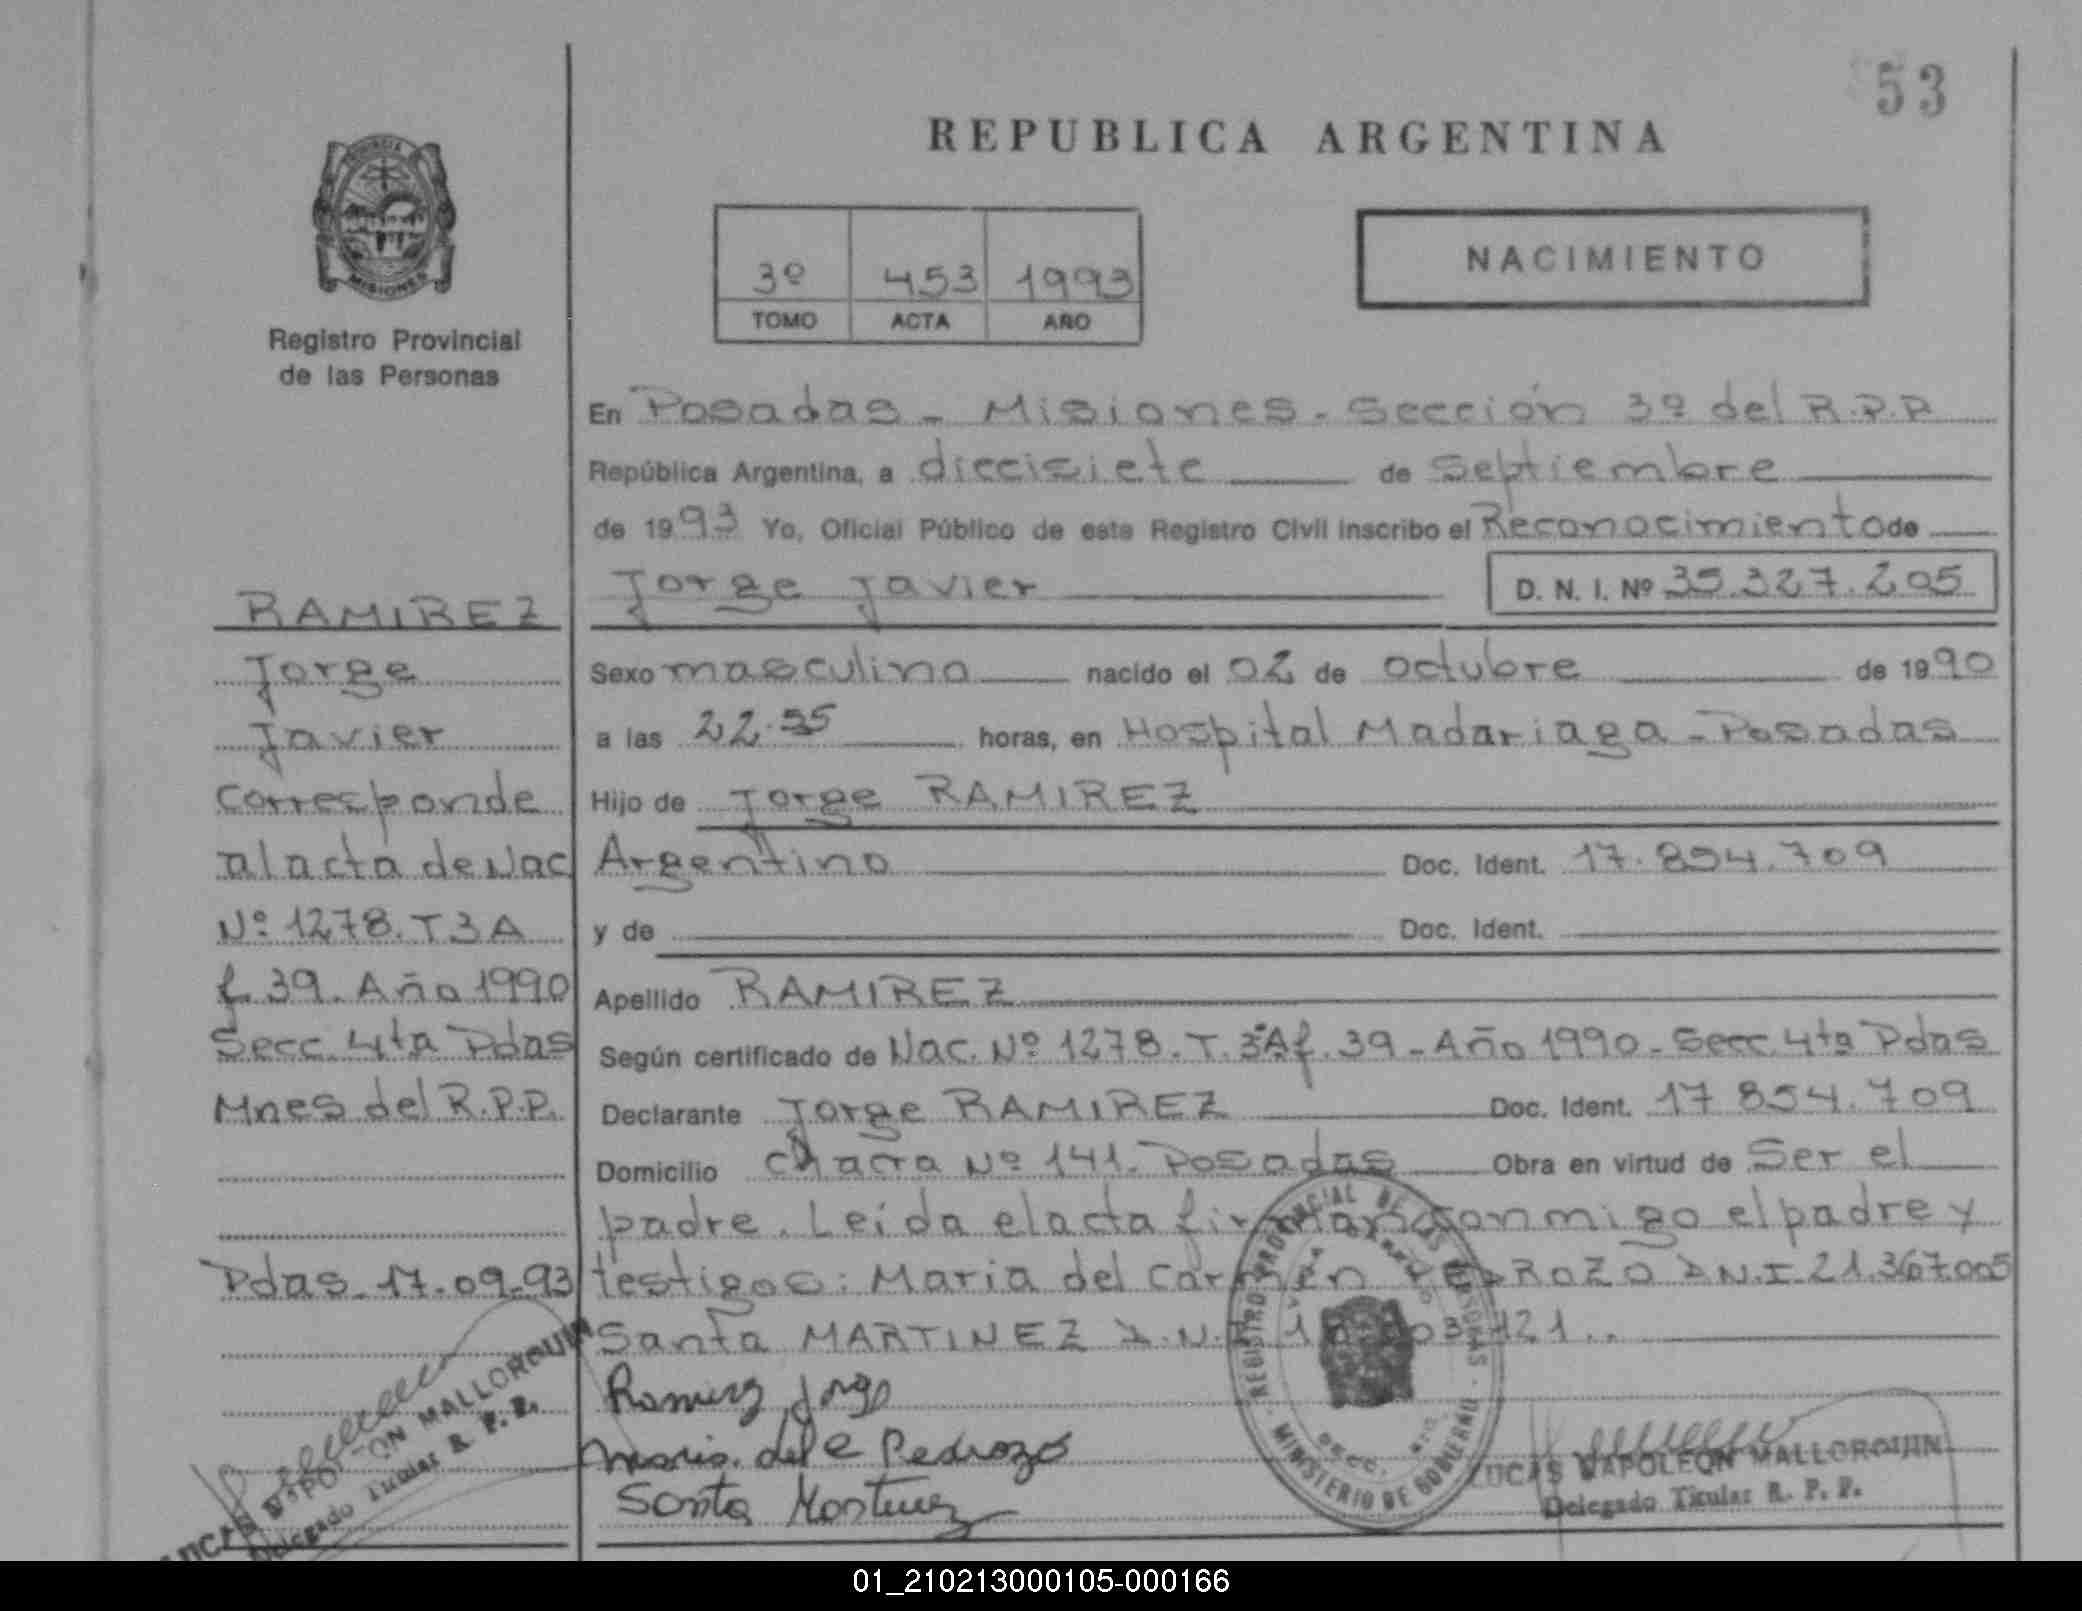 53
REPUBLICA ARGENTINA
PROVINCIA
MISIONES
Registro Provincial
de las Personas
3º 453 1993
TOMO ACTA AÑO
NACIMIENTO
En Posadas - Misiones - Sección 3º del R.P.P
República Argentina, a diecisiete de Septiembre
de 1993 Yo, Oficial Público de este Registro Civil inscribo el Reconocimiento de
Jorge Javier D. N. I. Nº 35.327.205
Sexo masculino nacido el 02 de octubre de 1990
a las 22.35 horas, en Hospital Madariaga - Posadas
Hijo de Jorge RAMIREZ
Argentino Doc. Ident. 17.854.709
y de Doc. Ident.
Apellido RAMIREZ
Según certificado de Nac. Nº 1278. T. 3ºA f. 39 - Año 1990 - Secc 4ta Pdas
Declarante Jorge RAMIREZ Doc. Ident. 17 854.709
Domicilio chacra Nº 141. Posadas Obra en virtud de Ser el
padre. Leída el acta firman conmigo el padre y
testigos: Maria del Carmen PEDROZO D.N.I 21.367.005
Santa MARTINEZ D.N.I
Ramirez Jorge
Maria. del C Pedrozo
Santa Martinez
RAMIREZ
Jorge
Javier
Corresponde
al acta de Nac
Nº 1278. T 3 A
f. 39. Año 1990
Secc. 4ta Pdas
Mnes del R.P.P.
Pdas. 17.09.93
LUCAS NAPOLEON MALLORQUIN
Delegado Titular R. P. P.
REGISTRO PROVINCIAL DE LAS PERSONAS
MINISTERIO DE GOBIERNO
LUCAS NAPOLEON MALLORQUIN
Delegado Titular R. P. P.
01_210213000105-000166